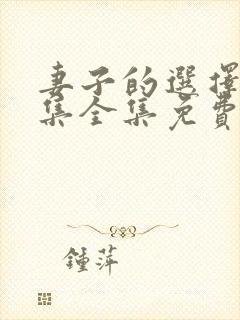 妻子的選擇
集全集免費
鍾萍